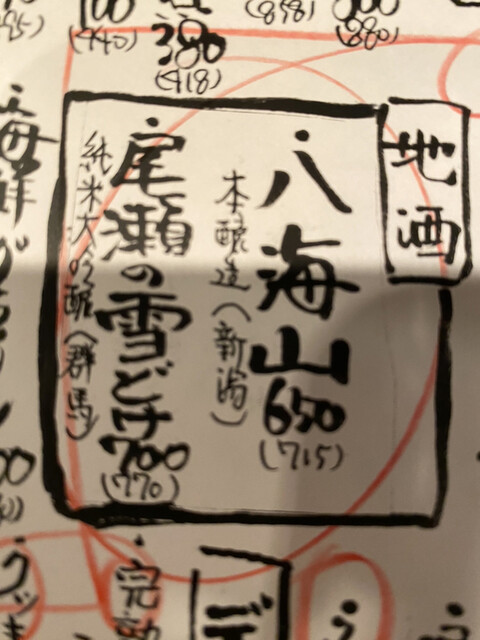 00
(440)
380
(418)
(858)
(880)
地酒
・八海山
650
(715)
本醸造(新潟)
・尾瀬の雪どけ
700
(770)
純米大吟醸(群馬)
・海鮮
・完
デ
・クッキ